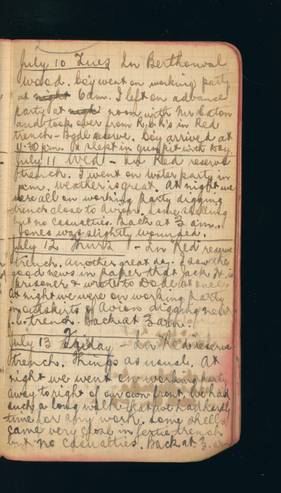 July 10 Tues In Berthonval
Wood. Coy went on working party
at night 6 am. I left on advance
party at noon, with Mr.
and took over from R.C.R's in Red
trench - Bgde reserve. Coy arrived at
11.30 pm. I slept in gum pit with Kay.
July 11 Wed - In Red reserve
trench. I went on water party in
pm. Weather is great. At night we
were all on working party digging
trench close to Avion. Some shelling
but no casualties. Back at 3 am.
Jones was slightly wounded.
July 12 Thurs - In Red reserve
trench. Another great day. I saw the
good news in paper that Jack Jr. is
prisoner & wrote to at once.
At night we were on working party
in outskirts of Avion digging new
trench. Back at 3 am.
July 13 Friday - In Red reserve
trench. Things as usual. At
night we went on working party
away to right of our own front. We had
such a long walk that we had hardly
time for any work. Some shells
came very close in trench
but no casualties. Back at 3. am